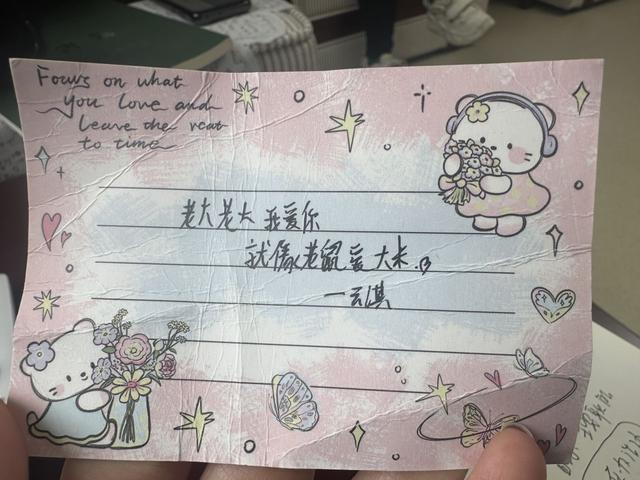 Focus on what
you love and
leave the reat
to time
老大老大我爱你
就像老鼠爱大米
一云淇